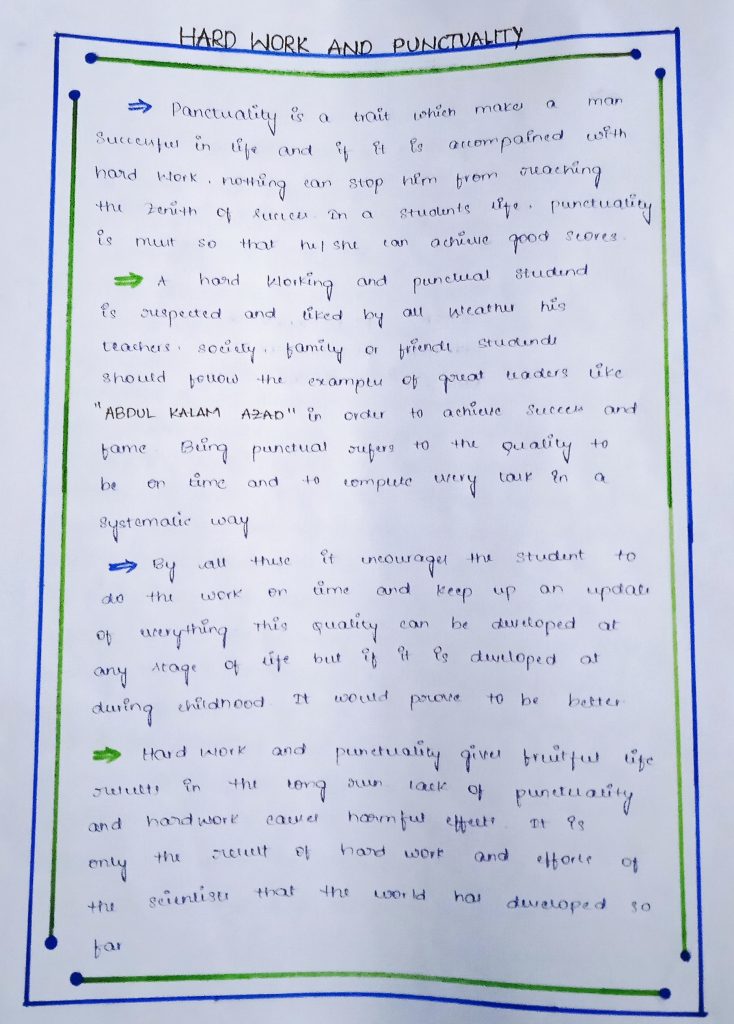 HARD WORK AND PUNCTUALITY
⇒ Panctuality is a trait which makes a man
successful in life and if it is accompained with
hard work. nothing can stop him from reaching
the zenith of success In a students life. punctuality
is must so that he/she can achieve good scores.
⇒ A hard working and punctual studend
is respected and liked by all weather his
teachers. society. family or friends studends
should follow the examples of great leaders like
"ABDUL KALAM AZAD" in order to achieve success and
fame. Being punctual refers to the quality to
be on time and to complete every task in a
systematic way
⇒ By all these it encourages the student to
do the work on time and keep up an update
of everything This quality can be developed at
any stage of life but if it is developed at
during childhood It would prove to be better.
⇒ Hard work and punctuality gives fruitful life
results in the long run lack of punctuality
and hardwork causes harmful effects. It is
only the result of hard work and efforts of
the scientists that the world has developed so
far